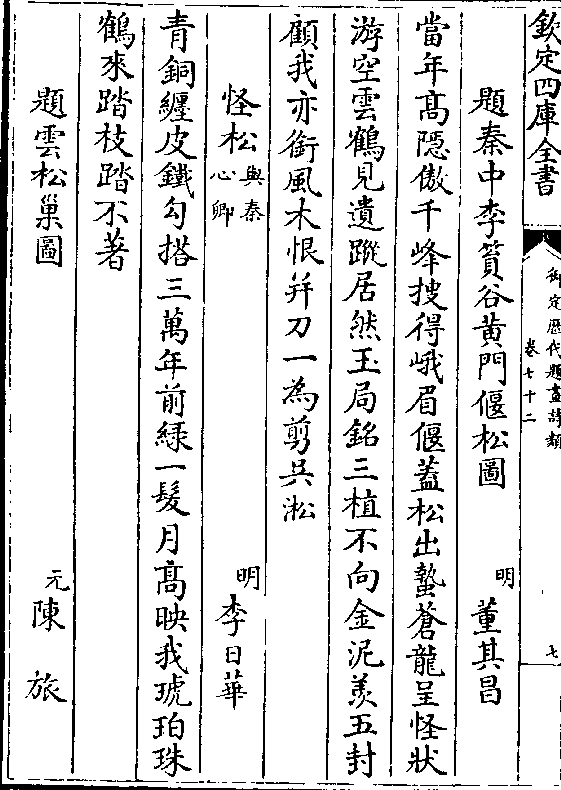 欽定四庫全書
御定歷代題畫詩類
卷七十二
七
題秦中李篔谷黄門偃松圖
明
董其昌
當年髙隠傲千峰搜得峨眉偃蓋松出蟄蒼龍呈怪狀
游空雲鶴見遺蹤居然玉局銘三植不向金泥羨五封
顧我亦銜風木恨并刀一為剪呉淞
怪松
與秦
心卿
明
李日華
青銅纒皮鐵勾搭三萬年前緑一髪月髙映我琥珀珠
鶴來踏枝踏不著
題雲松巢圖
元
陳旅